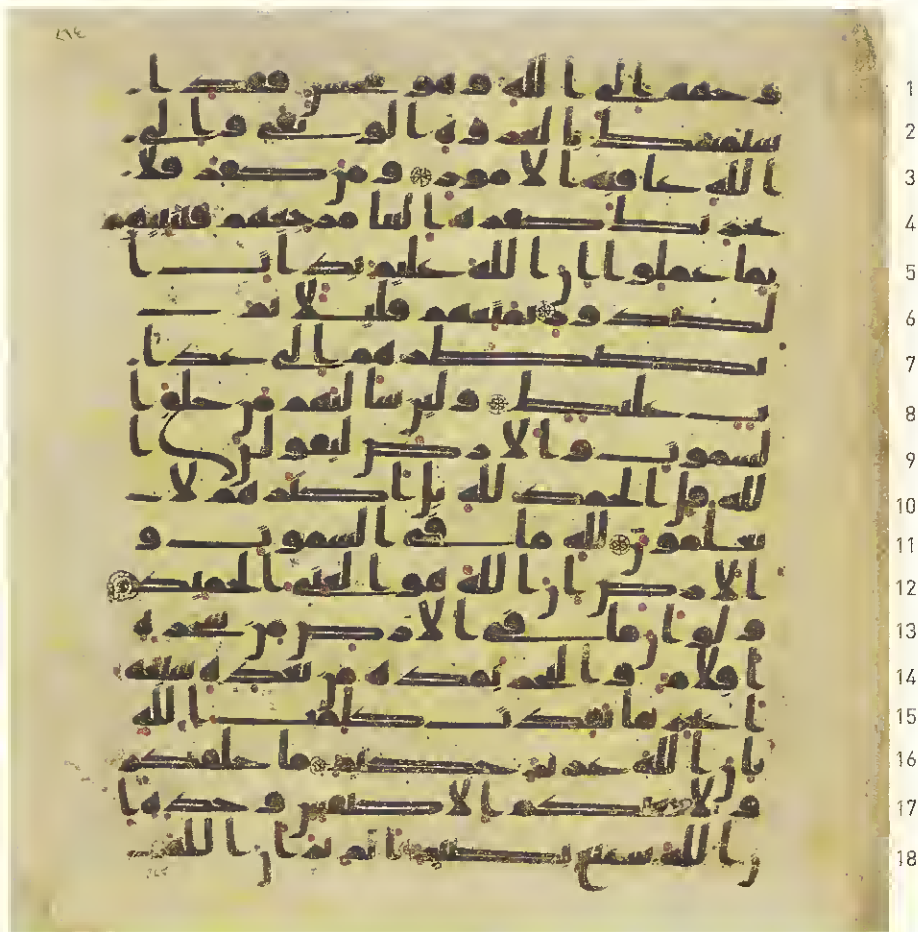 1 وجهه الى الله وهو محسن فقد ا
2 ستمسك بالعروة الوثقى والى
3 الله عاقبة الامور ومن كفر فلا
4 يحزنك كفره الينا مرجعهم فننبئهم
5 بما عملوا ان الله عليم بذات ا
6 لصدور نمتعهم قليلا ثم
7 نضطرهم الى عذا
8 ب غليظ ولئن سالتهم من خلق ا
9 لسموت والارض ليقولن ا
10 لله قل الحمد لله بل اكثرهم لا
11 يعلمون لله ما في السموت و
12 الارض ان الله هو الغني الحميد
13 ولو ان ما في الارض من شجرة
14 اقلم والبحر يمده من بعده سبعة
15 ابحر ما نفدت كلمت الله
16 ان الله عزيز حكيم ما خلقكم
17 ولا بعثكم الا كنفس وحدة ا
18 ن الله سميع بصير الم تر ان الله